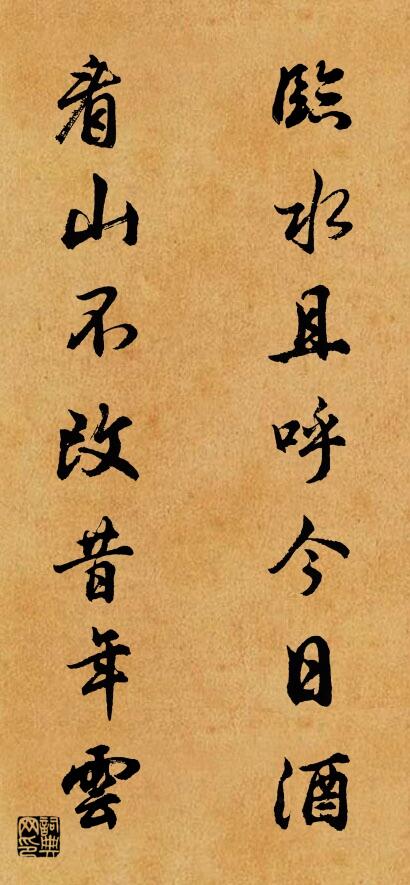 臨水且呼今日酒
看山不改昔年雲
詞典網印